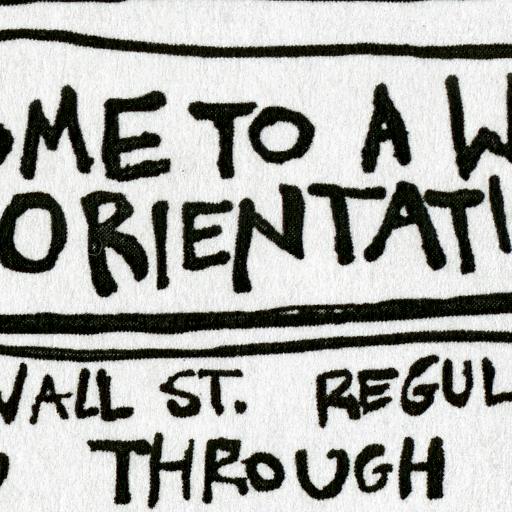 OME TO A W
ORIENTATI
WALL ST. REGUL
THROUGH